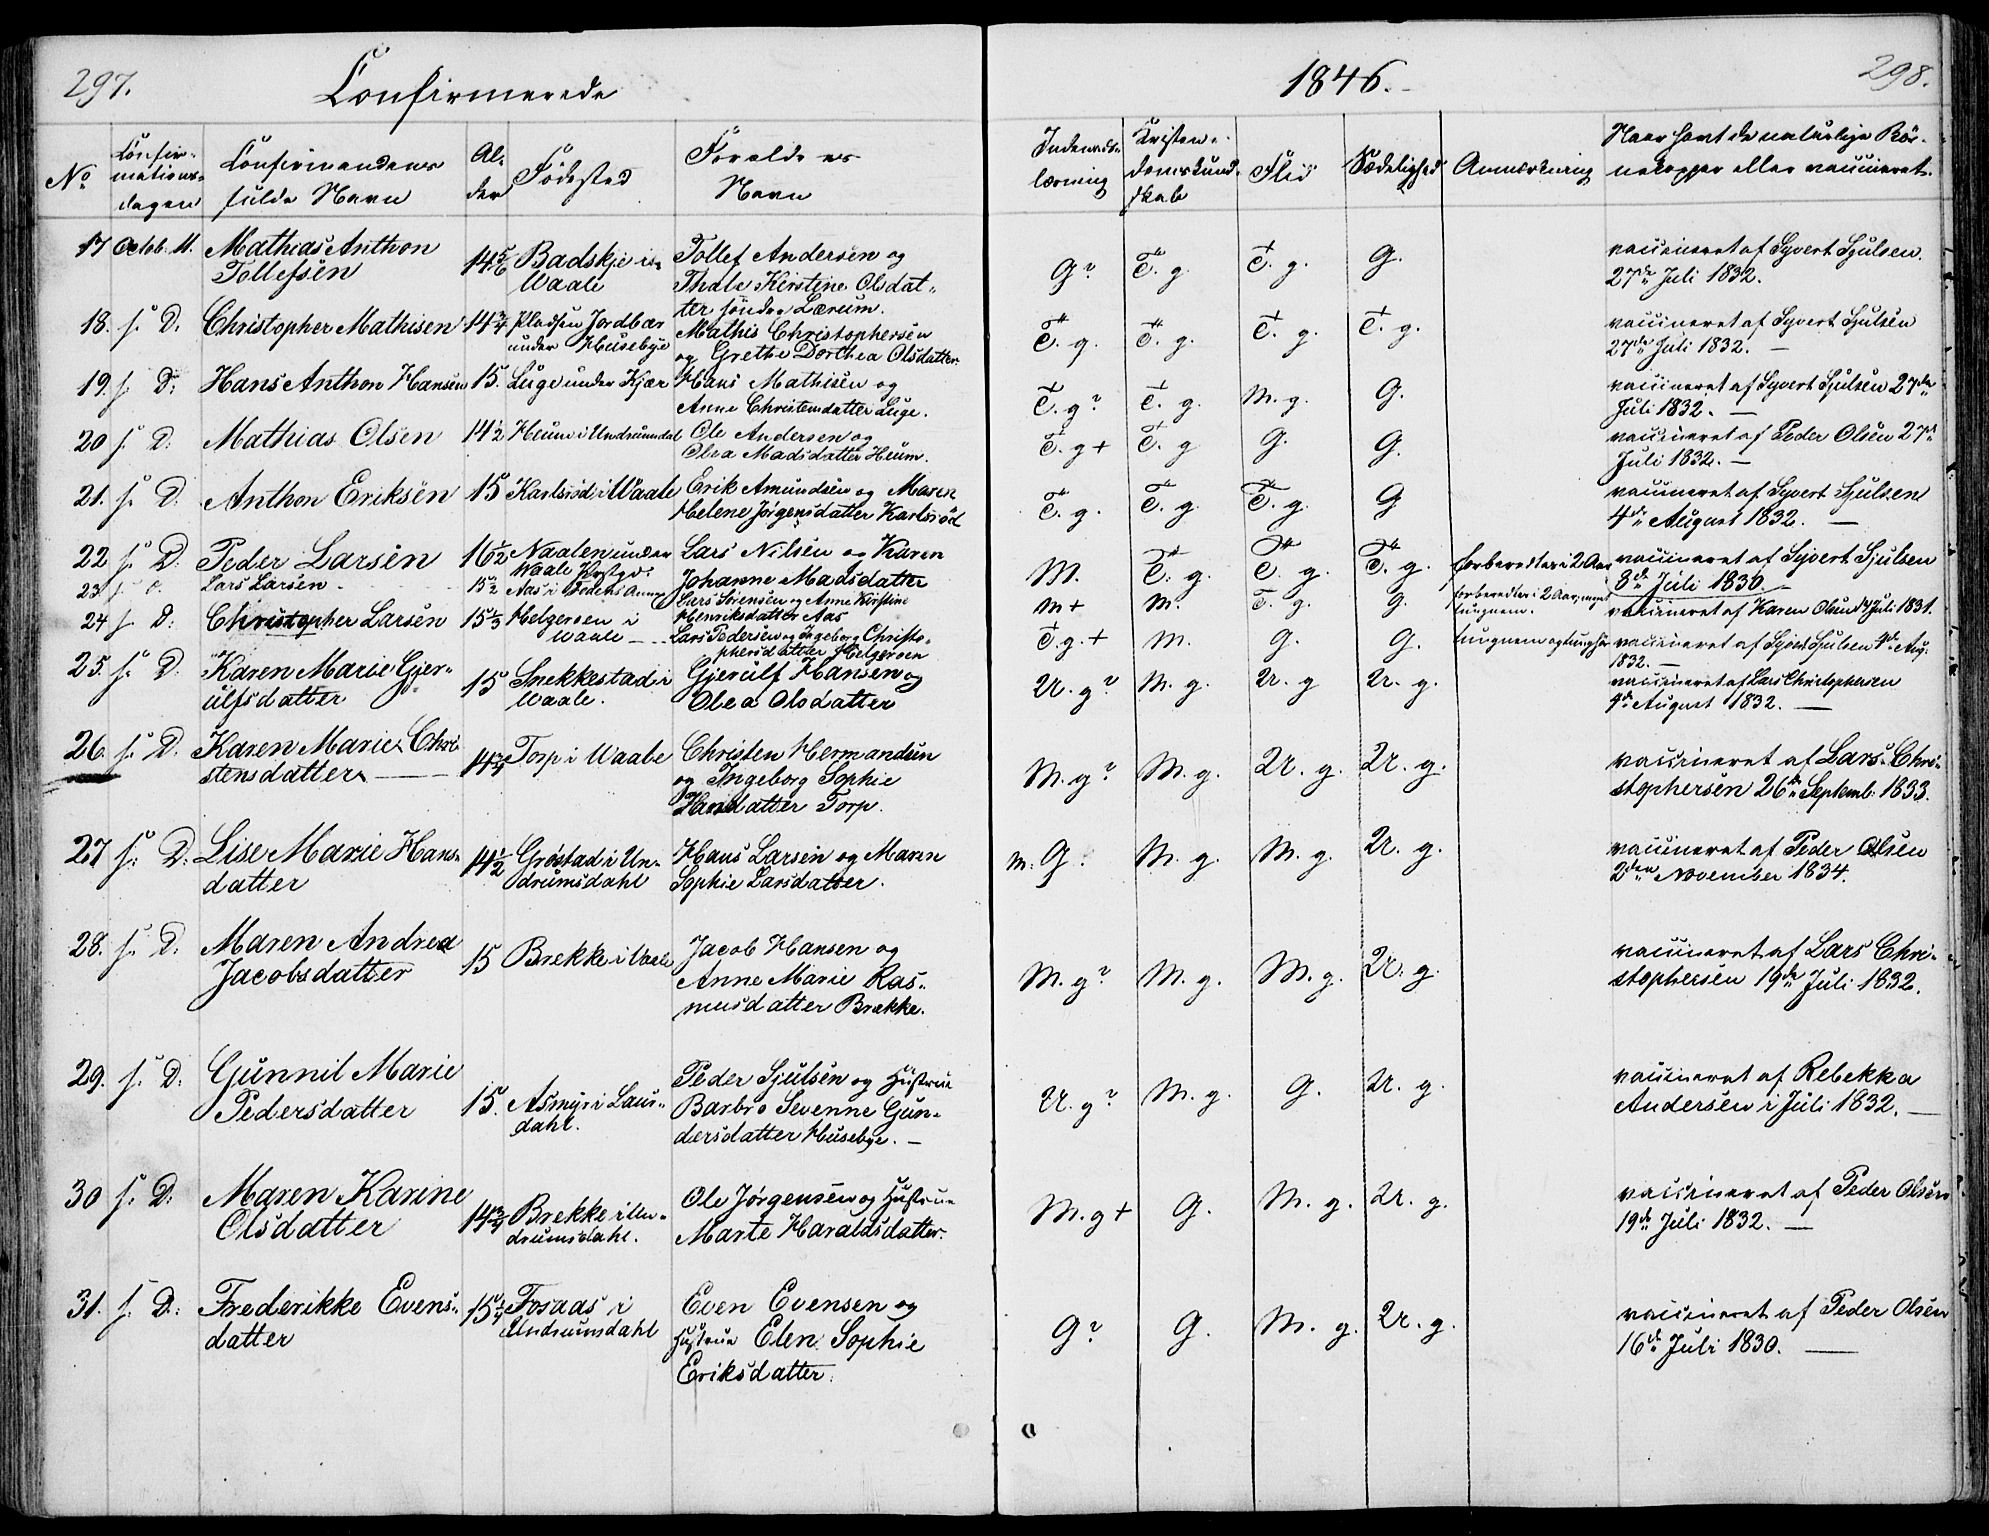 297.
Confirmerede
1846.
298.
No
Confir-
mations-
dagen
Confirmandens
fulde Navn
Al-
der
Födested
Foreldres
Navn
Indenads-
læsning
Kristen-
domskund-
skab
Flid
Sædelighed
Anmerkning
Naar havt de naturlige Bör-
nekopper eller vaccineret.
17 Octob. 11. Mathias Anthon
Tollefsen
14 5/6 Badskje i
Waale
Tollef Andersen og
Thale Kirstine Olsdat-
ter söndre Lærum.
G? T. g. T. g. G.
vaccineret af Syvert Sjulsen
27de Juli 1832.
18. s. D. Christopher Mathisen 14 3/4 Pladsen Jordbær
under Husebye
Mathis Christophersen
og Grethe Dorthea Olsdatter
T. g. T. g. T. g. T. g.
vaccineret af Syvert Sjulsen
27de Juli 1832. —
19. s. D. Hans Anthon Hansen 15. Luge under Kjær Hans Mathisen og
Anne Christensdatter Luge.
T. g? T. g. M. g. G.
vaccineret af Syvert Sjulsen 27de
Juli 1832. —
20 s. D. Mathias Olsen 14 1/2 Heum i Undrumdal Ole Andersen og
Olea Madsdatter Heum.
T. g + T. g G. G.
vaccineret af Peder Olsen 27de
Juli 1832. —
21. s. D. Anthon Eriksen 15 Karlsröd i Waale Erik Amundsen og Maren
Helene Jörgensdatter Karlsröd
T. g. T. g. T. g. G
vaccineret af Syvert Sjulsen
4de August 1832. —
22 s. D. Peder Larsen 16 1/2 Naalen under
Waale Prstgd.
Lars Nilsen og Karen
Johanne Madsdatter
M. T. g. T. g. T. g. forberedtes i 2 Aar
vaccineret af Syvert Sjulsen
8de Juli 1830
23 s. D. Lars Larsen 15 1/2 Aas i Fodens Annex
Lars Sörensen og Anne Kirstine
Henriksdatter Aas
M + M. T. g. g. forberedtes i 2 Aar, meget
tungnem.
vaccineret af Karen Olsen Juli 1831.
24 s. D. Christopher Larsen 15 1/3 Helgeroen i
Waale —
Lars Pedersen og Ingeborg Christo-
phersdatter Helgeroen
T. g. + M. G. G. tungnem og tunghör
vaccineret af Syvert Sjulsen 4de Aug.
1832. —
25. s. D. Karen Marie Gjer-
ulfsdatter
15 Snekkestad i
Waale.
Gjerulf Hansen og
Olea Olsdatter
U. g? M. g. U. g U. g.
vaccineret af Lars Christophersen
4de August 1832. —
26. s. D. Karen Marie Chri
stensdatter
14 3/4 Torp i Waale
Christen Hermandsen
og Ingeborg Sophie
Hansdatter Torp.
M. g? M. g. U. g. U. g.
vaccineret af Lars Chri-
stophersen 26de Septemb. 1833.
27 s. D. Lise Marie Hans-
datter
14 1/2 Gröstad i Un-
drumsdahl
Hans Larsen og Maren
Sophie Larsdatter.
M. G? M. g. M. g. U. g.
vaccineret af Peder Olsen
2den November 1834.
28. s. D. Maren Andrea
Jacobsdatter
15 Brekke i Vale
Jacob Hansen og
Anne Marie Ras-
musdatter Brekke.
M. g? M. g. M. g. U. g.
vaccineret af Lars Chri-
stophersen 19de Juli 1832.
29. s. D. Gunnil Marie
Pedersdatter
15. Asmyr i Laur-
dahl.
Peder Sjulsen og Hustrue
Barbro Sevenne Gun-
dersdatter Husebye. —
U. g? M. g. G. U. g.
vaccineret af Rebekka
Andersen i Juli 1832. —
30 s. D. Maren Karine
Olsdatter
14 3/4 Brekke i Un-
drumsdahl.
Ole Jörgensen og Hustrue
Marte Haraldsdatter.
M. g + G. M. g. U. g.
vaccineret af Peder Olsen
19de Juli 1832. —
31. s. D. Frederikke Evens-
datter
15 1/4 Fosaas i
Undrumsdahl
Even Evensen og
Hustrue Elen Sophie
Eriksdatter.
G? G. M. g. U. g.
vaccineret af Peder Olsen
16de Juli 1830. —